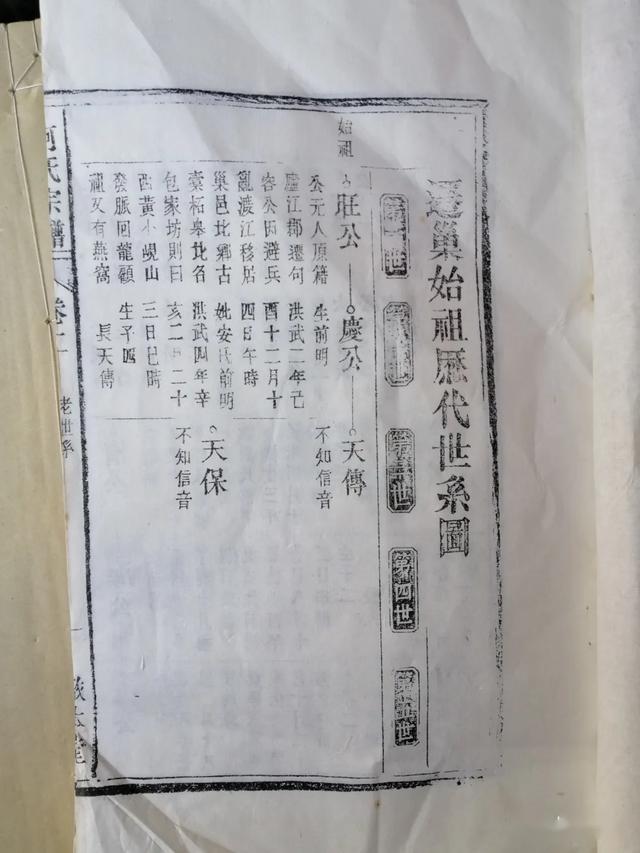 遷巢始祖歷代世系圖
第一世
第二世
第三世
第四世
第五世
始祖
旺公
慶公
天傳
公元人原籍
廬江郡遷句
容公因避兵
亂渡江移居
巢邑北鄉古
橐柘皋北名
包家坊則曰
西黃小峴山
發脈回龍顧
祖又有燕窩
生前明
洪武二年己
酉十二月十
四日午時
妣安氏前明
洪武四年辛
亥二月二十
三日巳時
生子四
長天傳
不知信音
天保
不知信音
氏宗譜
卷
老世系
一
敦本堂